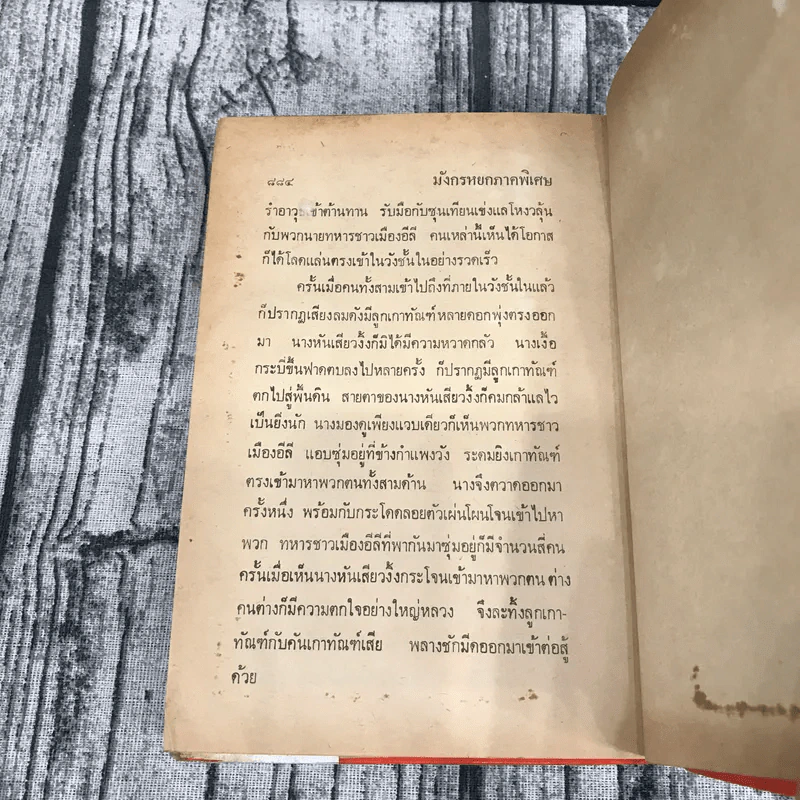 ๘๘๔ มังกรหยกภาคพิเศษ
รำอาวุธเข้าต้านทาน รับมือกับซุนเทียนเซ่งแลโหงวลุ้น
กับพวกนายทหารชาวเมืองอีลี คนเหล่านี้เห็นได้โอกาส
ก็ได้โลดแล่นตรงเข้าในวังชั้นในอย่างรวดเร็ว
ครั้นเมื่อคนทั้งสามเข้าไปถึงที่ภายในวังชั้นในแล้ว
ก็ปรากฏเสียงลมดังมีลูกเกาทัณฑ์หลายดอกพุ่งตรงออก
มา นางหันเสียวงั้งก็มิได้มีความหวาดกลัว นางเงื้อ
กระบี่ขึ้นฟาดตบลงไปหลายครั้ง ก็ปรากฏมีลูกเกาทัณฑ์
ตกไปสู่พื้นดิน สายตาของนางหันเสียวงั้งก็คมกล้าแลไว
เป็นยิ่งนัก นางมองดูเพียงแวบเดียวก็เห็นพวกทหารชาว
เมืองอีลี แอบซุ่มอยู่ที่ข้างกำแพงวัง ระดมยิงเกาทัณฑ์
ตรงเข้ามาหาพวกตนทั้งสามด้าน นางจึงตวาดออกมา
ครั้งหนึ่ง พร้อมกับกระโดดลอยตัวเผ่นโผนโจนเข้าไปหา
พวก ทหารชาวเมืองอีลีที่พากันมาซุ่มอยู่ก็มีจำนวนสี่คน
ครั้นเมื่อเห็นนางหันเสียวงั้งกระโจนเข้ามาหาพวกตน ต่าง
คนต่างก็มีความตกใจอย่างใหญ่หลวง จึงละทิ้งลูกเกา-
ทัณฑ์กับคันเกาทัณฑ์เสีย พลางชักมีดออกมาเข้าต่อสู้
ด้วย